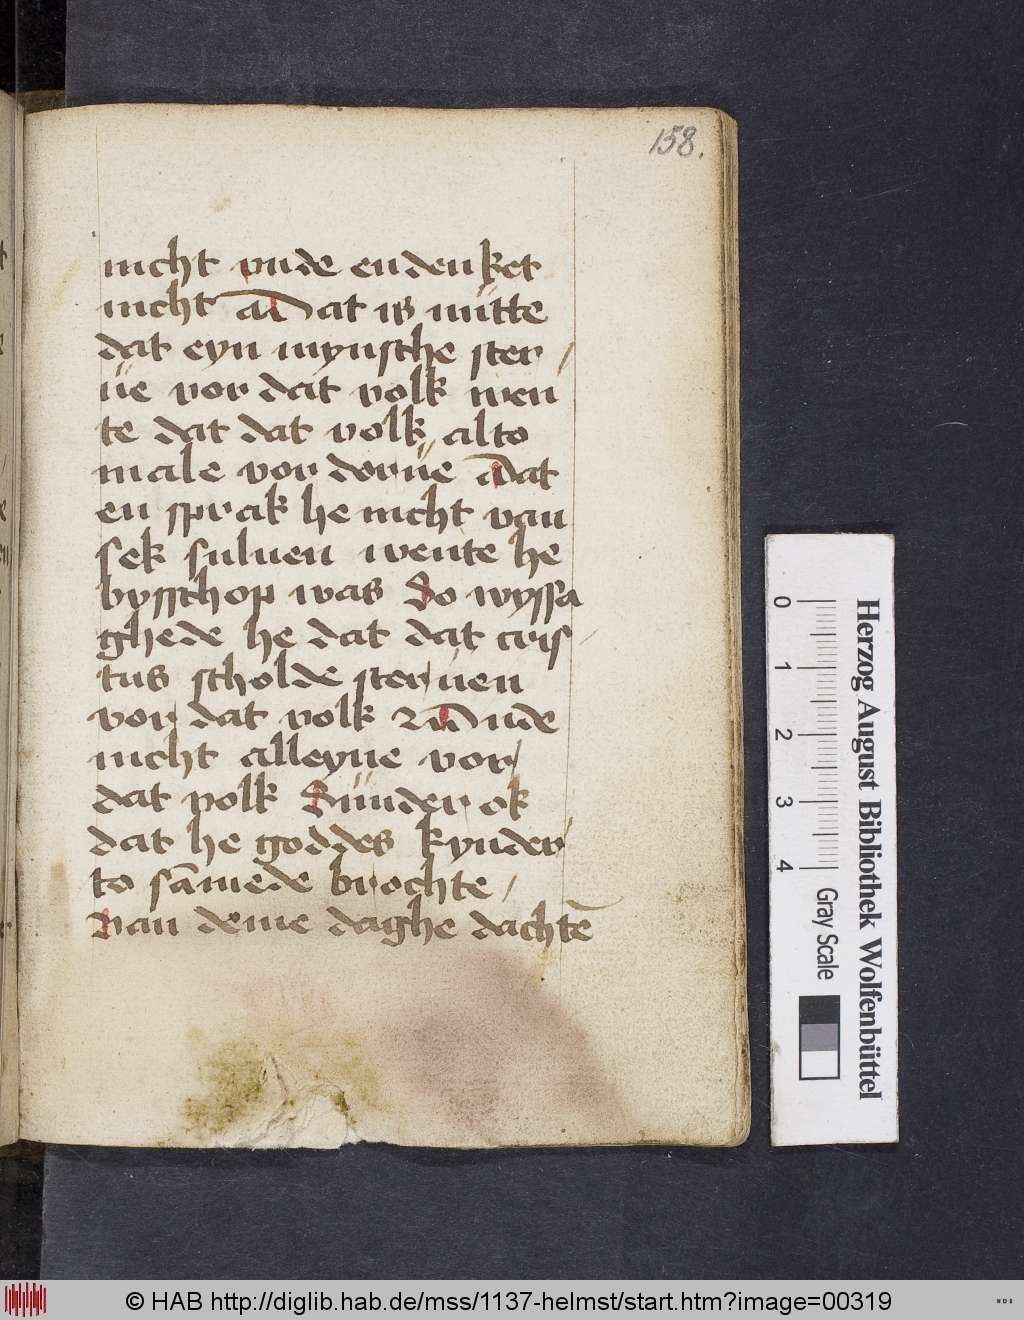 158.
nicht vnde en denket
nicht Dat is nütte
dat eyn mynsche ster/
üe vor dat volk wen
te dat dat volk alto
male vor derüe Dat
en sprak he nicht van
sek suluen wente he
bysschop was So wyssa
ghede he dat dat cris/
tus scholde steruen
vor dat volk Vnde
nicht alleyne vor/
dat volk Sünder ok
dat he goddes kynder/
to sāmede brochte/
Van deme daghe dachtē
0 1 2 3 4
Gray Scale
Herzog August Bibliothek Wolfenbüttel
© HAB http://diglib.hab.de/mss/1137-helmst/start.htm?image=00319